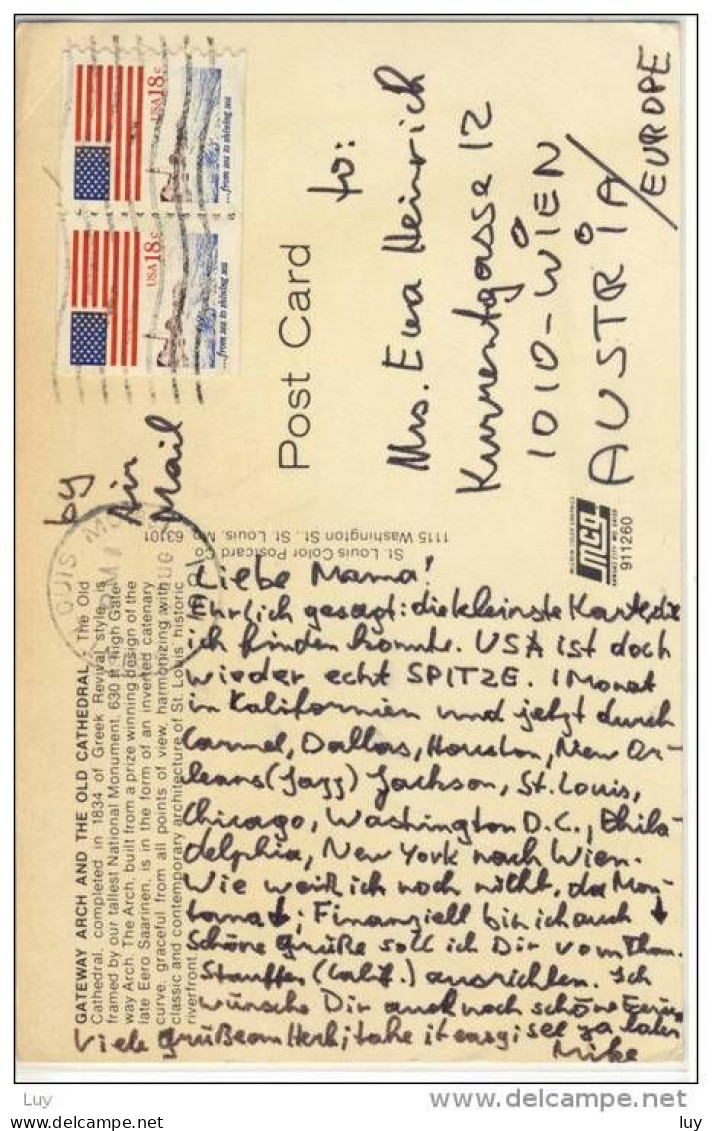 GATEWAY ARCH AND THE OLD CATHEDRAL: The Old
Cathedral, completed in 1834 of Greek Revival style, is
framed by our tallest National Monument, 630 ft. high Gate
way Arch. The Arch, built from a prize winning design of the
late Eero Saarinen, is in the form of an inverted catenary
curve, graceful from all points of view, harmonizing with
classic and contemporary architecture of St. Louis' historic
riverfront.
by
Air
Mail
USA 18c
...from sea to shining sea
USA 18c
...from sea to shining sea
LOUIS MO
PM
AUG
1981
St. Louis Color Postcard Co
1115 Washington St., St. Louis, Mo 63101
Post Card
to:
Mrs. Eva Heinrich
Kurrentgasse 12
1010-WIEN
AUSTRIA/
EUROPE
MCG
911260
Liebe Mama!
Ehrlich gesagt: die kleinste Karte, die
ich finden konnte. USA ist doch
wieder echt SPITZE. 1 Monat
in Kalifornien und jetzt durch
Carmel, Dallas, Houston, New Or-
leans (Jazz) Jackson, St. Louis,
Chicago, Washington D.C., Phila-
delphia, New York nach Wien.
Wie weiß ich noch nicht, da Mon-
tana ↓; Finanziell bin ich auch ↓
Schöne Grüße soll ich Dir vom Thom.
Stauffer (Calif.) ausrichten. Ich
wünsche Dir auch noch schöne Ferien
Viele Grüße am Herbi; take it easy; see ya later
Mike
Luy
delcampe.net
luy